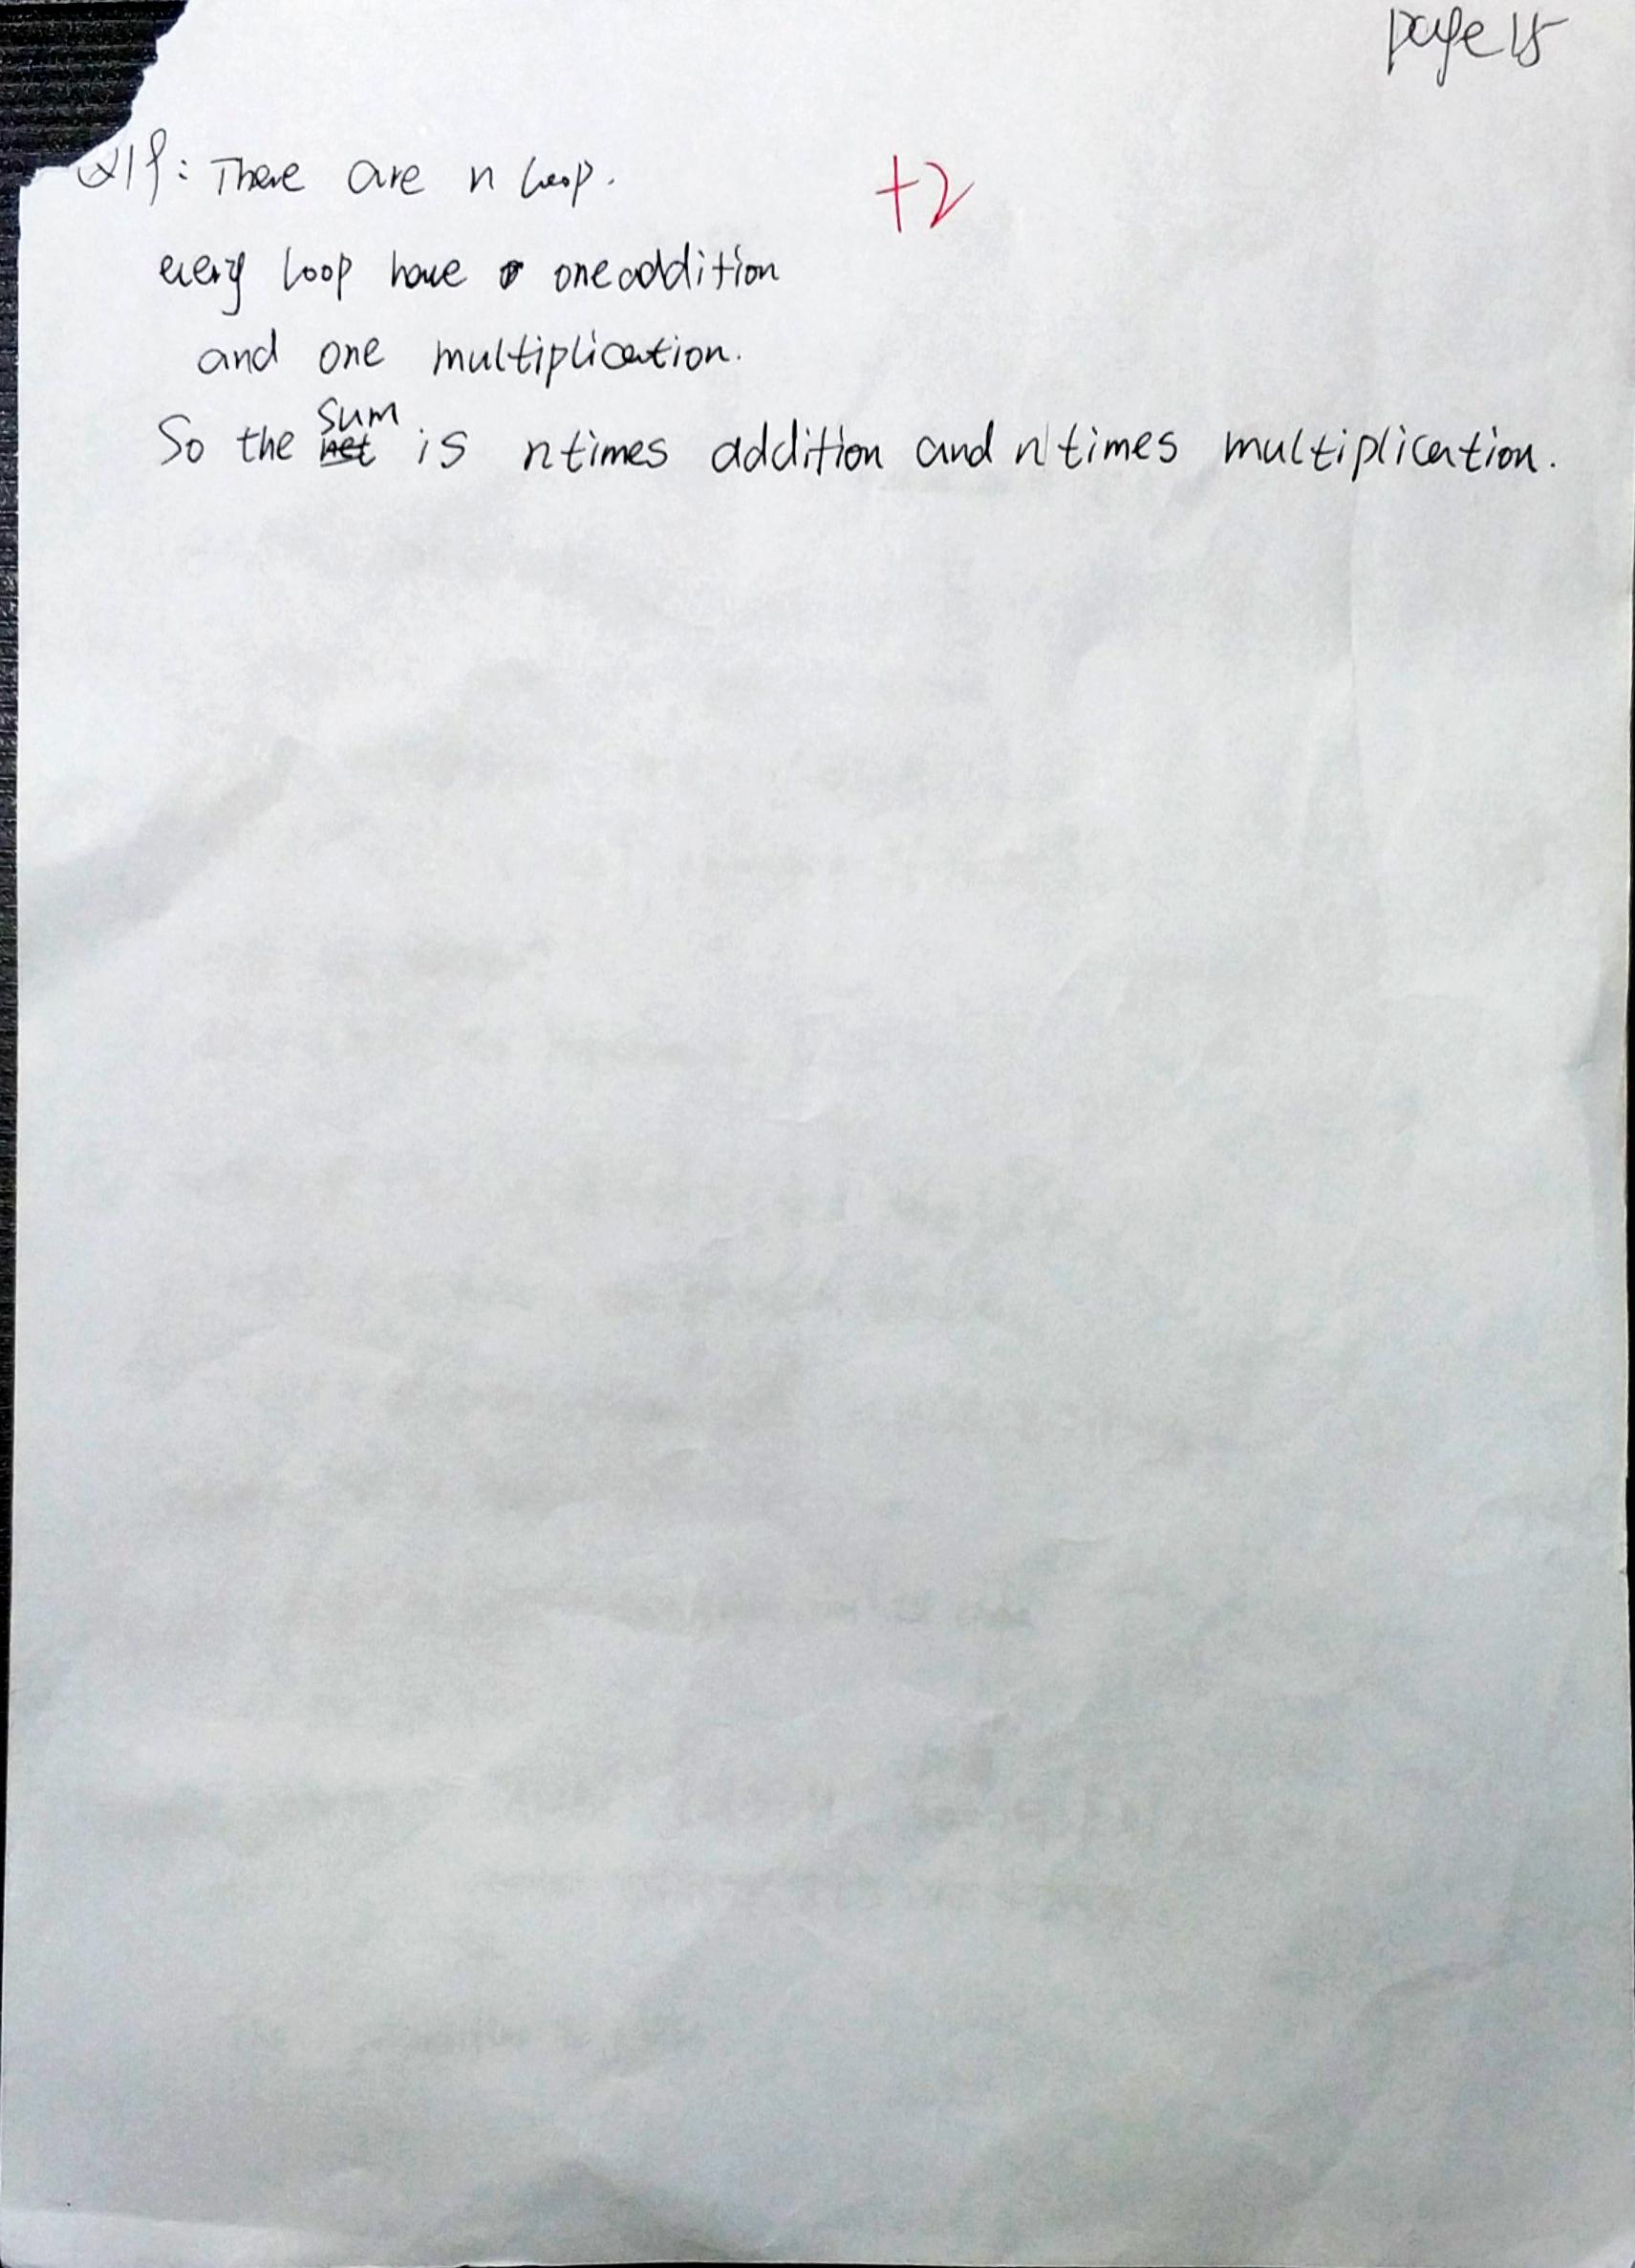 page 15
Q19: There are n loop.
+2
every loop have one addition
and one multiplication.
sum
So the net is n times addition and n times multiplication.